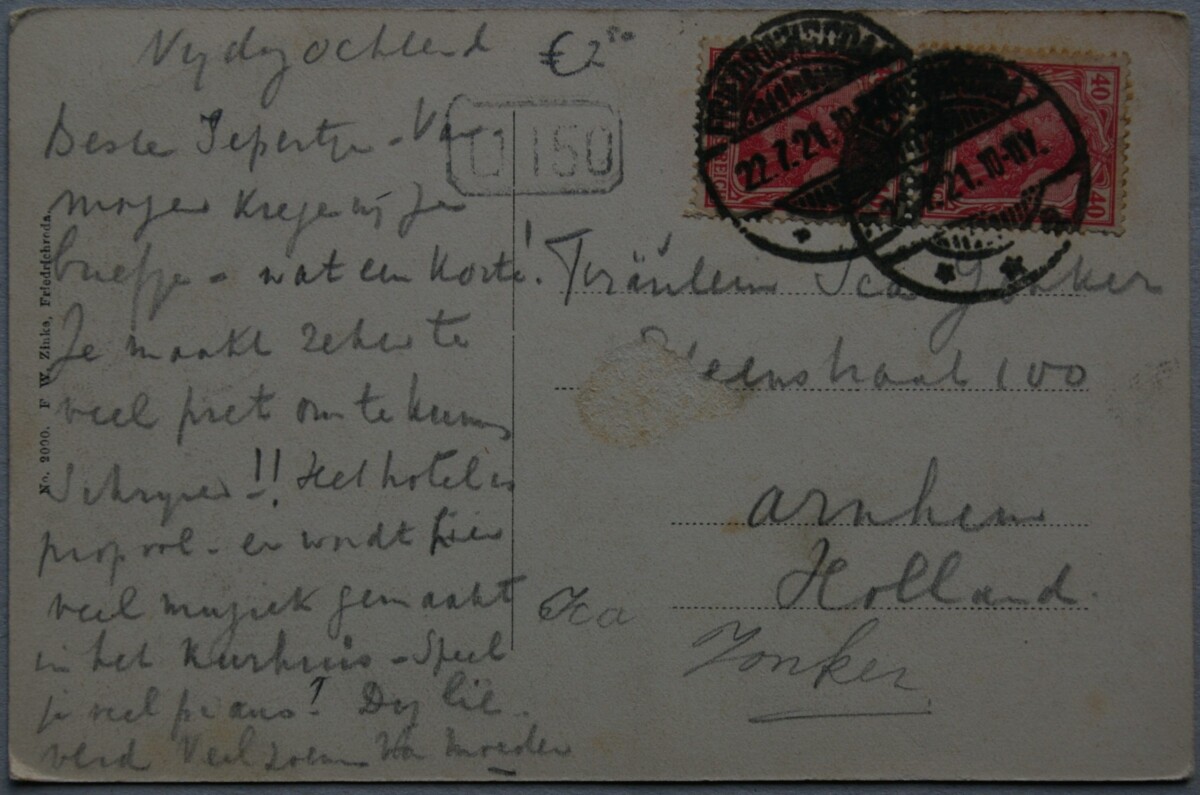 Vrydagochtend
€2⁵⁰
Beste Pepertje - Van
morgen kregen wij je
briefje - wat een korte!
Je maakt zeker te
veel pret om te kunnen
schryven!! Het hotel is
propvol - er wordt hier
veel muziek gemaakt
in het Kurhaus - Speel
je veel piano? Dag lie-
verd Veel zoenen van Moeder
No. 2000. F. W. Zinke, Friedrichroda.
U 150
22.7.21. 10
21. 10-11V.
40
40
REICH
Fräulein Ica Jonker
steenstraat 100
Arnhem
Holland.
Ica
Jonker